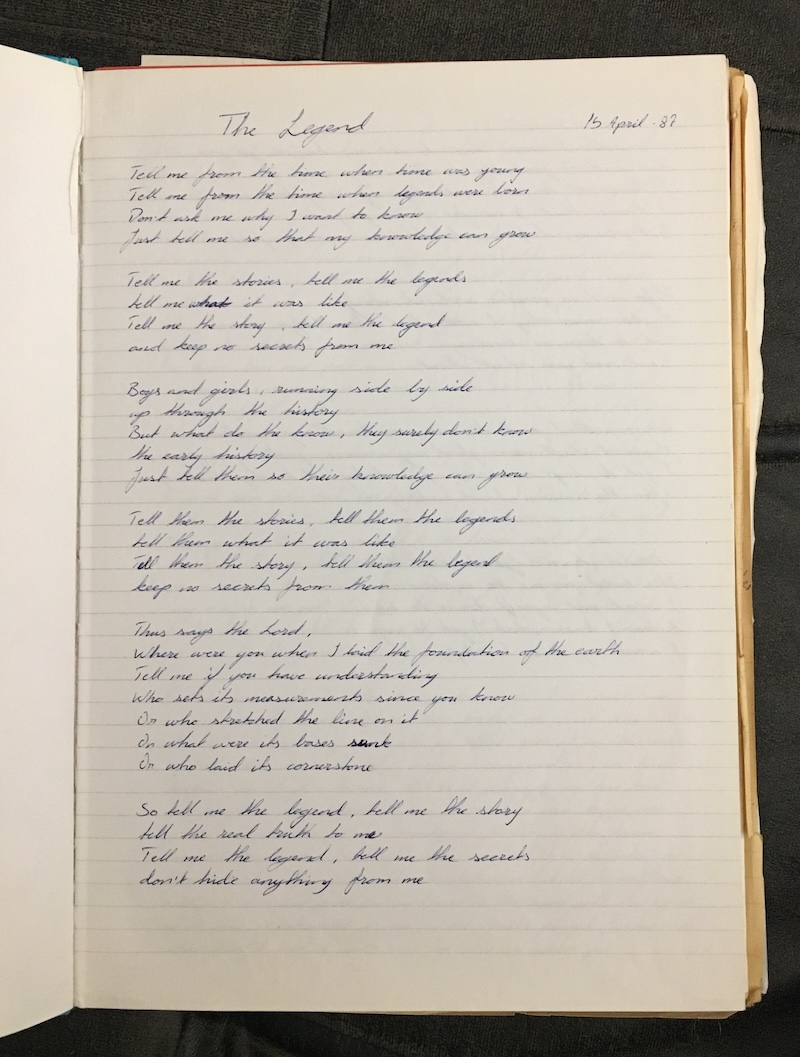 The Legend
15 April -87
Tell me from the time when time was young
Tell me from the time when legends were born
Don't ask me why I want to know
Just tell me so that my knowledge can grow
Tell me the stories, tell me the legends
tell me what it was like
Tell me the story, tell me the legend
and keep no secrets from me
Boys and girls, running side by side
up through the history
But what do the know, they surely don't know
the early history
Just tell them so their knowledge can grow
Tell them the stories, tell them the legends
tell them what it was like
Tell them the story, tell them the legend
keep no secrets from them
Thus says the Lord,
Where were you when I laid the foundation of the earth
Tell me if you have understanding
Who sets its measurements since you know
Or who stretched the line on it
On what were its bases sunk
Or who laid its cornerstone
So tell me the legend, tell me the story
tell the real truth to me
Tell me the legend, tell me the secrets
don't hide anything from me